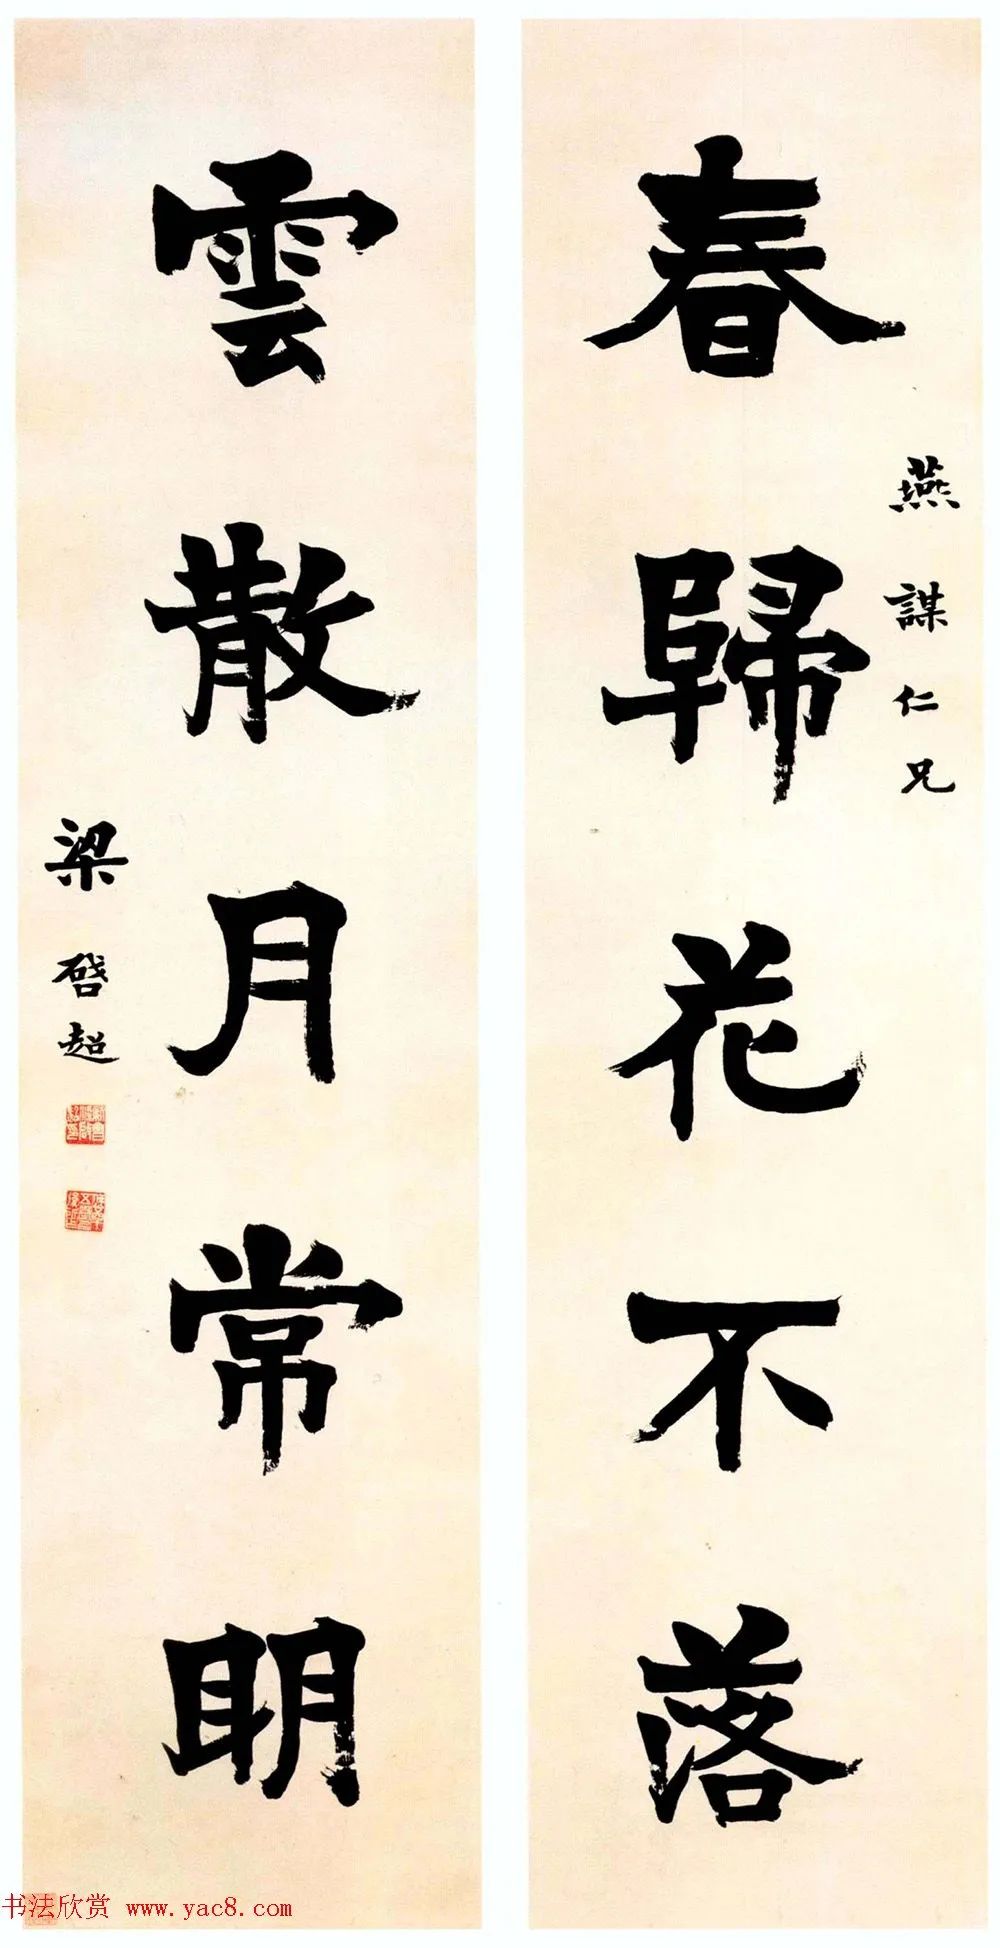 春歸花不落
燕謀仁兄
雲散月常明
梁啓超
书法欣赏 www.yac8.com